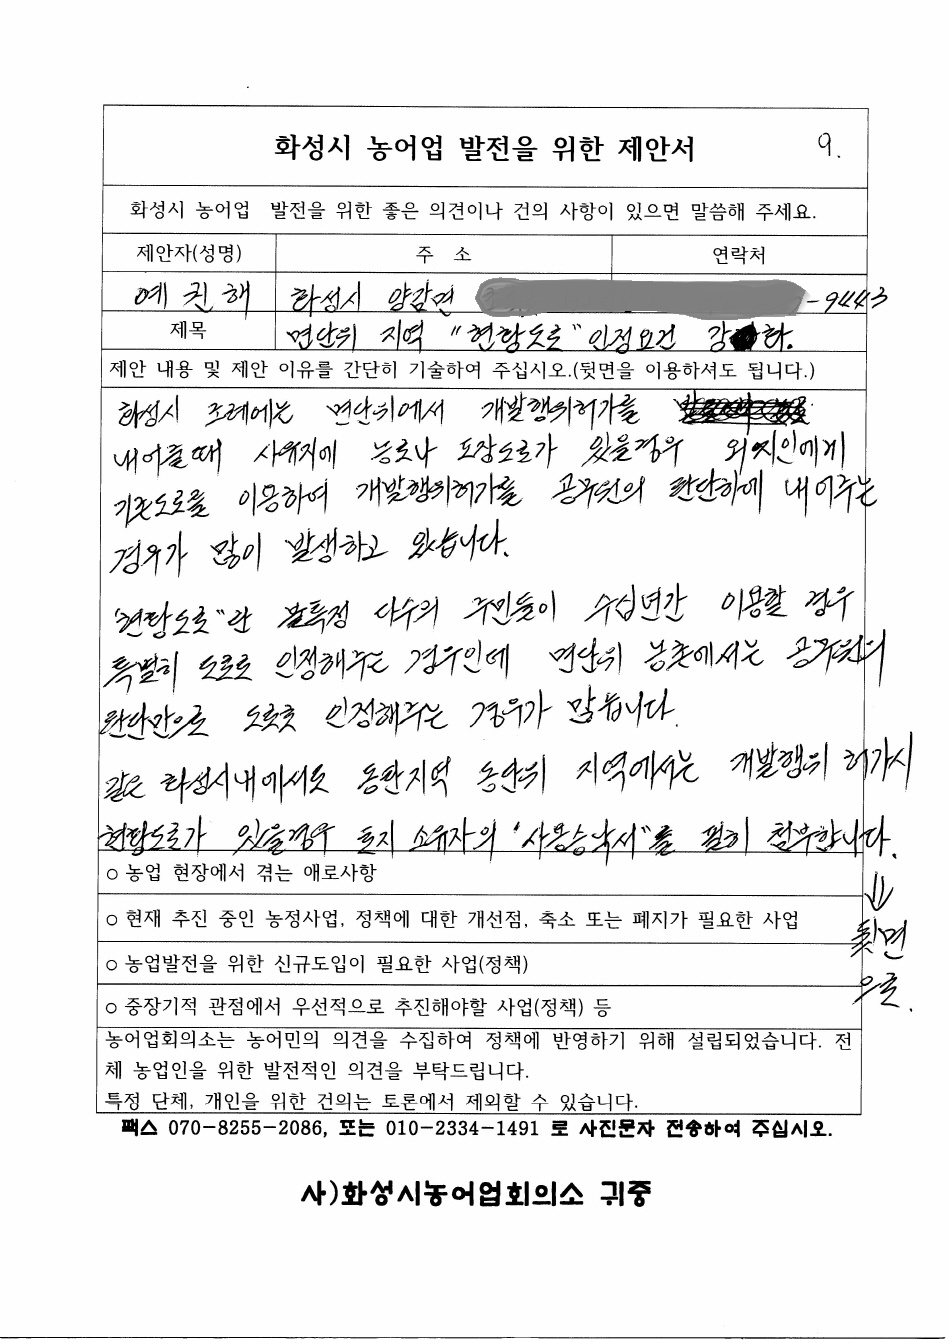 화성시 농어업 발전을 위한 제안서 9.
화성시 농어업 발전을 위한 좋은 의견이나 건의 사항이 있으면 말씀해 주세요.
제안자(성명) 주 소 연락처
예권해 화성시 양감면 -9443
제목 면단위 지역 "현황도로" 인정요건 강화.
제안 내용 및 제안 이유를 간단히 기술하여 주십시오.(뒷면을 이용하셔도 됩니다.)
화성시 조례에는 면단위에서 개발행위허가를
내어줄때 사유지에 농로나 포장도로가 있을경우 외지인에게
기존도로를 이용하여 개발행위허가를 공무원의 판단하에 내어주는
경우가 많이 발생하고 있습니다.
"현황도로"란 불특정 다수의 주민들이 수십년간 이용할 경우
특별히 도로로 인정해주는 경우인데 면단위 농촌에서는 공무원의
판단만으로 도로로 인정해주는 경우가 많습니다.
같은 화성시내에서도 동탄지역 동단위 지역에서는 개발행위 허가시
현황도로가 있을경우 토지 소유자의 "사용승낙서"를 필히 첨부합니다.
⇓
뒷면
으로.
○ 농업 현장에서 겪는 애로사항
○ 현재 추진 중인 농정사업, 정책에 대한 개선점, 축소 또는 폐지가 필요한 사업
○ 농업발전을 위한 신규도입이 필요한 사업(정책)
○ 중장기적 관점에서 우선적으로 추진해야할 사업(정책) 등
농어업회의소는 농어민의 의견을 수집하여 정책에 반영하기 위해 설립되었습니다. 전
체 농업인을 위한 발전적인 의견을 부탁드립니다.
특정 단체, 개인을 위한 건의는 토론에서 제외할 수 있습니다.
팩스 070-8255-2086, 또는 010-2334-1491 로 사진문자 전송하여 주십시오.
사)화성시농어업회의소 귀중